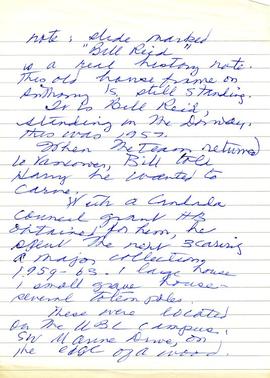 note: slide marked
"Bill Reid"
is a real history note.
This old house frame on
Anthony Is. still standing.
It is Bill Reid,
standing in the Doorway.
this was 1957.
When the team returned
to Vancouver, Bill told
Harry he wanted to
Carve.
With a Canada
Council grant HB
obtained for him, he
spent the next 3 carving
a major collection,
1959-63. 1 large house
1 small grave house-
several totem poles.
These were located
on the UBC campus,
SW Marine Drive, on
the edge of a wood.